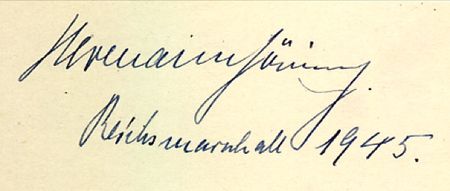 Hermann Göring
Reichsmarshall 1945.